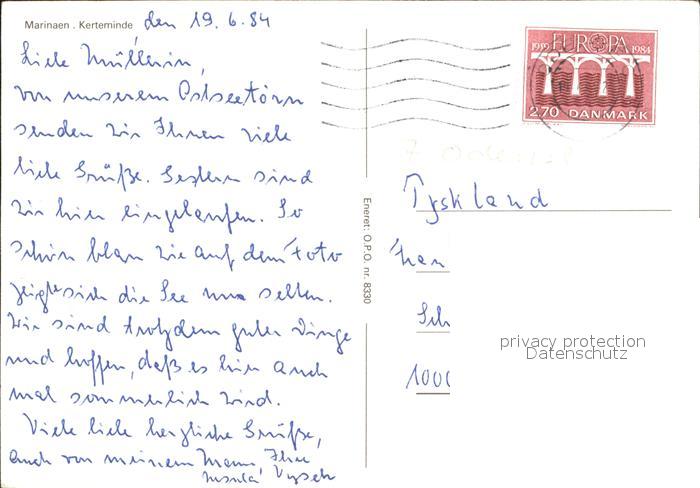 Marinaen . Kerteminde
den 19.6.84
Liebe Müllerin,
von unserem Ostseetörn
senden wir Ihnen viele
liebe Grüße. Gestern sind
wir hier eingelaufen. So
schön blau wie auf dem Foto
zeigte sich die See nur selten.
Wir sind trotzdem guter Dinge
und hoffen, daß es hier auch
mal sommerlich wird.
Viele liebe herzliche Grüße,
auch von meinem Mann, Ihre
Ursula
Eneret: O.P.O. nr. 8330
1959 EUROPA 1984
2.70 DANMARK
Tyskland
privacy protection
Datenschutz